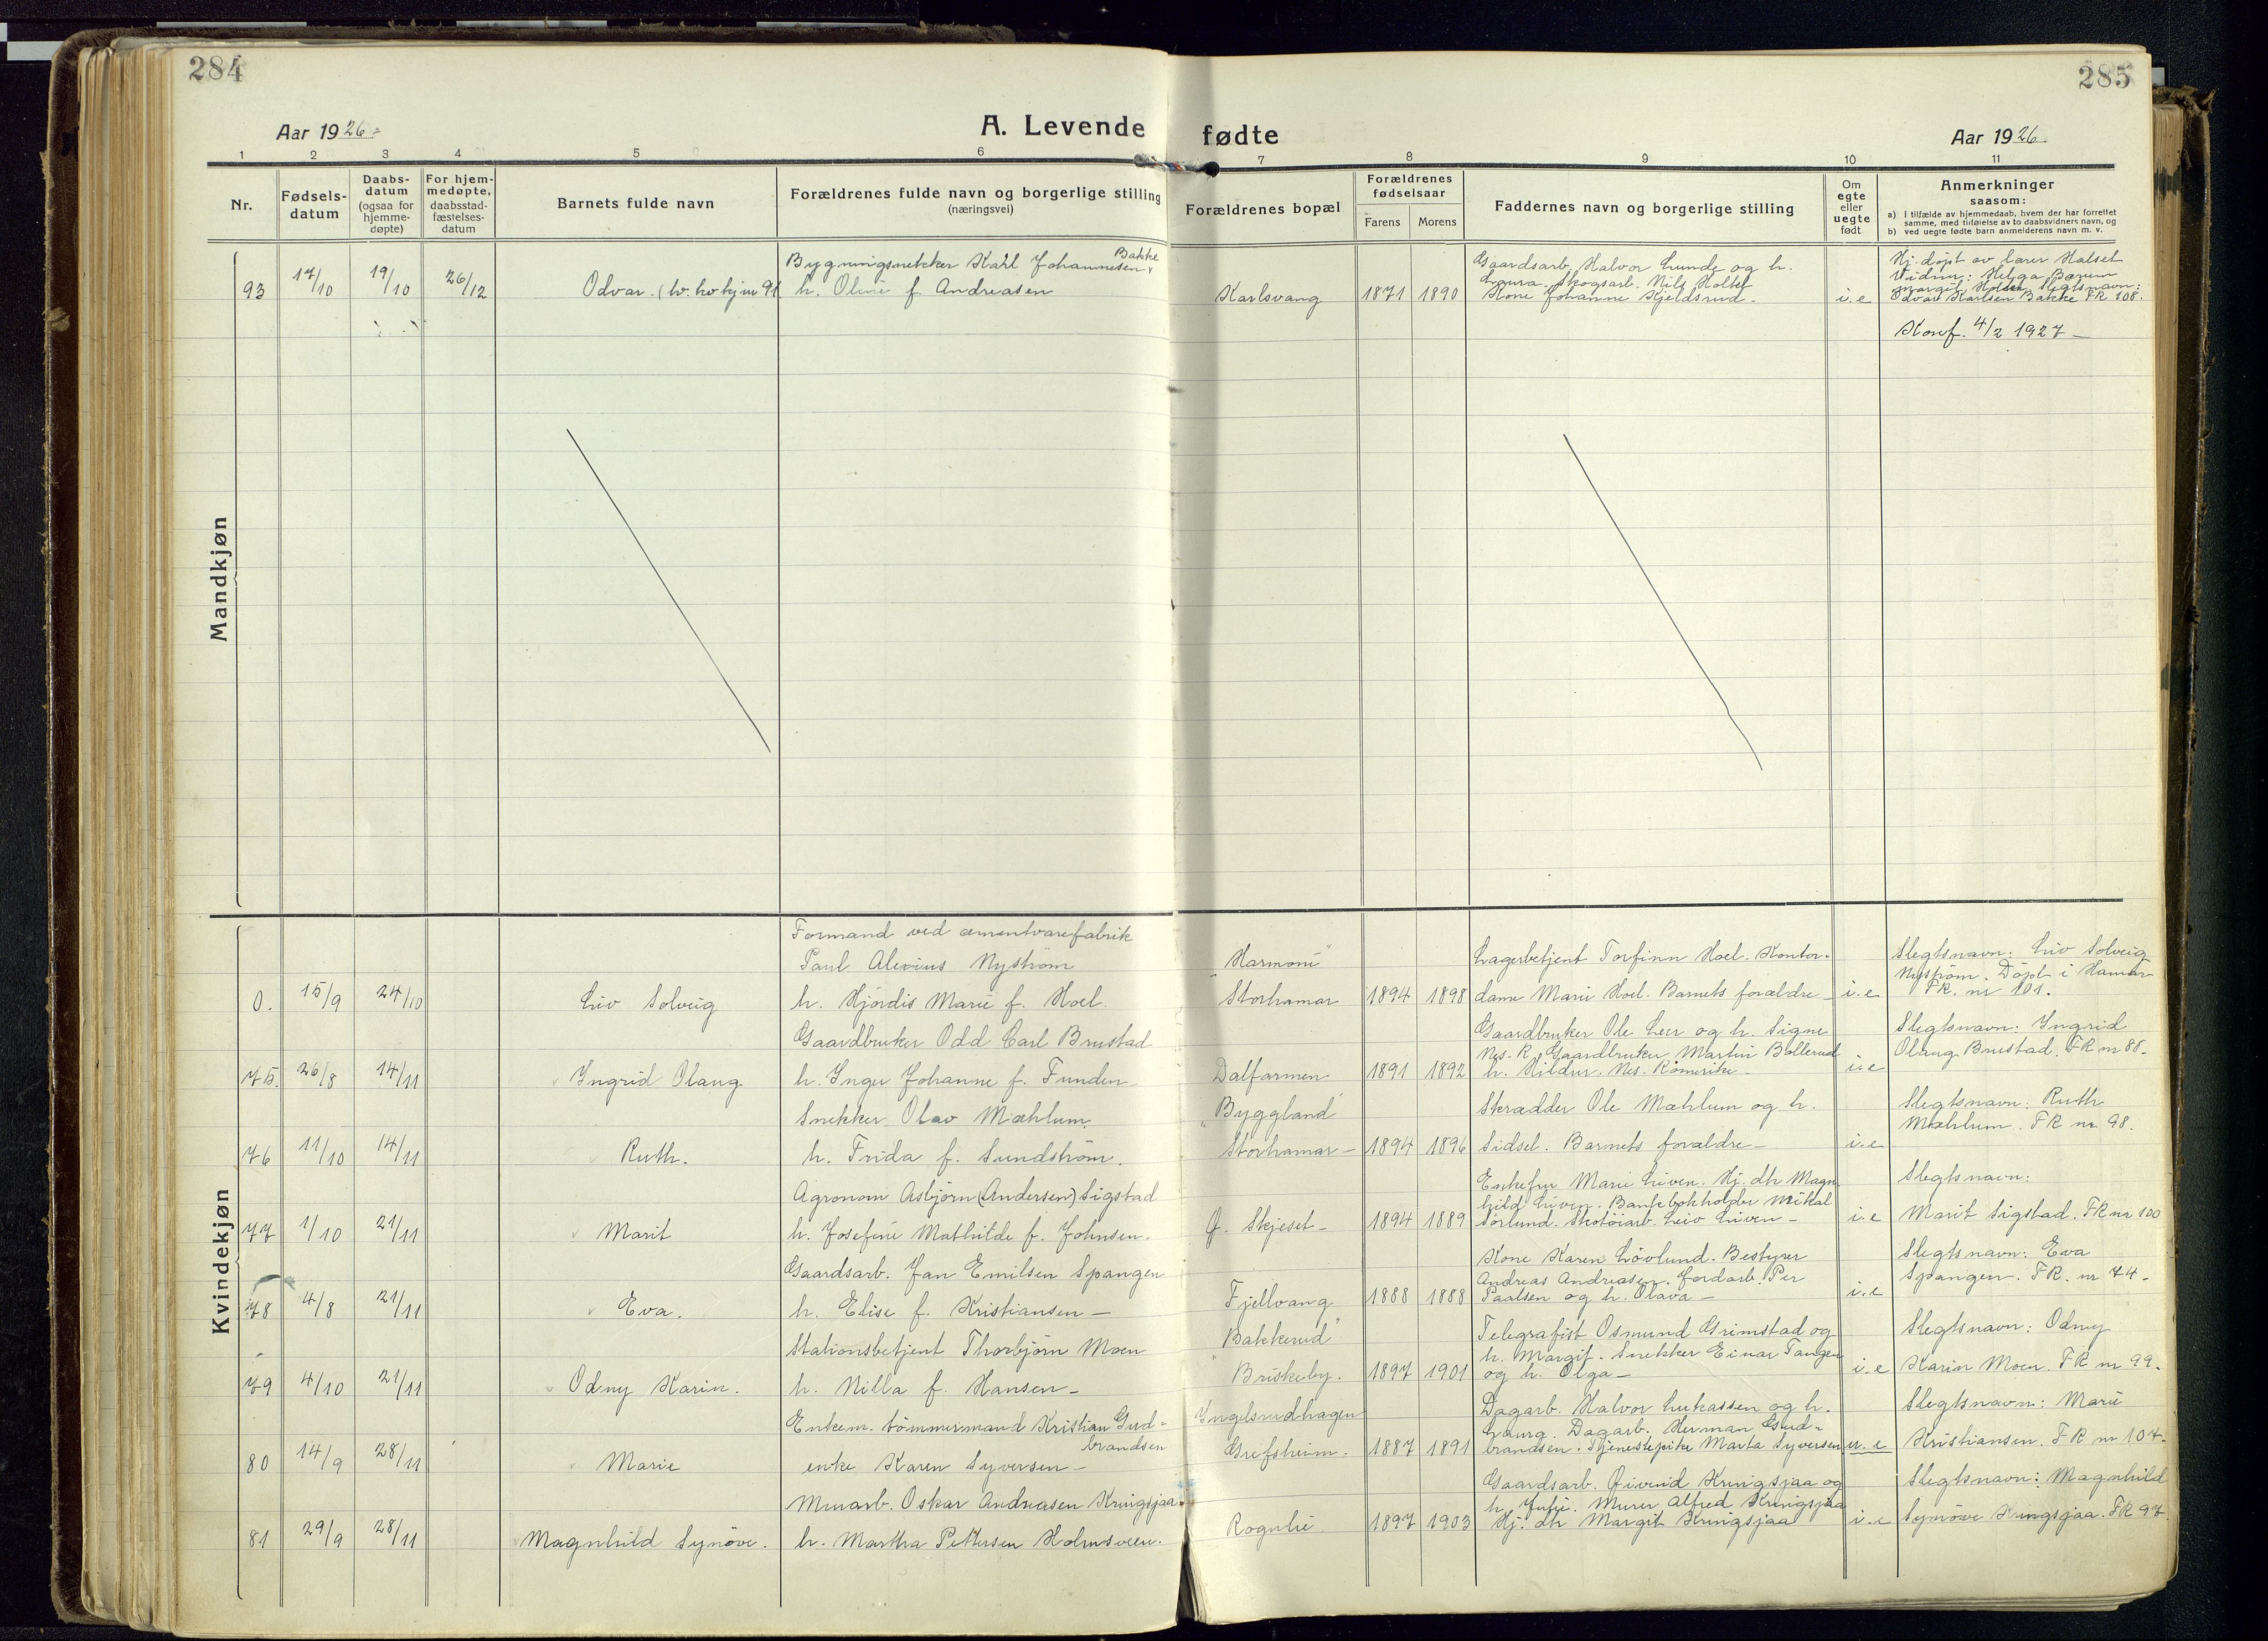 284
285
Aar 1926
A. Levende fødte
Aar 1926
1 2 3 4 5 6 7 8 9 10 11
Nr.
Fødsels-
datum
Daabs-
datum
(ogsaa for
hjemme-
døpte)
For hjem-
medøpte,
daabsstad-
fæstelses-
datum
Barnets fulde navn
Forældrenes fulde navn og borgerlige stilling
(næringsvei)
Forældrenes bopæl
Forældrenes
fødselsaar
Farens Morens
Faddernes navn og borgerlige stilling
Om
egte
eller
uegte
født
Anmerkninger
saasom:
a) i tilfælde av hjemmedaab, hvem der har forrettet
samme, med tilføielse av to daabsvidners navn, og
b) ved uegte fødte barn anmelderens navn m. v.
Mandkjøn
93 17/10 19/10 26/12
Odvar.
Bygningssnekker Karl Johannesen Bakke
h. Oline f. Andreasen
Karlsvang 1871 1890
Gaardsarb. Halvor Lunde og h.
Laura. Skogsarb. Nils Holtet
Kone Johanne Kjeldsrud.
i.e
Hj. døpt av lærer Halset
Vidner: Helga Bærum
Margit Holsen Slegtsnavn:
Odvar Karlsen Bakke FR 108.
Konf. 4/2 1927
Kvindekjøn
0. 15/9 24/10
Liv Solveig
Formand ved cementvarefabrik
Paul Alexius Nyström
h. Hjördis Marie f. Hoel
"Harmoni"
Storhamar 1894 1898
Lagerbetjent Torfinn Hoel. Kontor-
dame Marie Hoel. Barnets forældre
i.e
Slegtsnavn: Liv Solveig
Nyström. Döpt i Hamar
FR. nr 101.
75. 26/8 14/11
Ingrid Olaug
Gaardbruker Odd Carl Brustad
h. Inger Johanne f. Funden
Dalfarmen 1891 1892
Gaardbruker Ole Leir og h. Signe
Nes. R. Gaardbruker Martin Bollerud
h. Hildur. Nes. Romerike
i.e
Slegtsnavn: Ingrid
Olaug Brustad. FR nr 88.
76 11/10 14/11
Ruth.
Snekker Olav Mæhlum.
h. Frida f. Sundström.
"Byggland"
Storhamar 1894 1896
Skrædder Ole Mæhlum og h.
Sidsel. Barnets forældre
i.e
Slegtsnavn: Ruth
Mæhlum. FR nr 98.
77 1/10 21/11
Marit
Agronom Asbjörn (Andersen) Sigstad
h. Josefine Mathilde f. Johnsen.
Ø. Skjeset 1894 1889
Enkefru Marie Liven. Hj. dtr Magn
hild Liven. Bankebokholder Mikal
Sørlund. Skotøiarb. Leiv Liven
i.e
Slegtsnavn:
Marit Sigstad. FR nr 100
78 4/8 21/11
Eva.
Gaardsarb. Jan Emilsen Spangen
h. Elise f. Kristiansen
Fjellvang 1888 1888
Kone Karen Lövlund. Bestyrer
Andreas Andreasen. Jordarb. Per
Paalsen og h. Olava
i.e
Slegtsnavn: Eva
Spangen. FR. nr 74
79 4/10 21/11
Odny Karin.
Stationsbetjent Thorbjörn Moen
h. Milla f. Hansen
"Bakkerud"
Briskeby. 1897 1901
Telegrafist Osmund Grimstad og
h. Margit. Snekker Einar Tangen
og h. Olga
i.e
Slegtsnavn: Odny
Karin Moen. FR nr 99.
80 14/9 28/11
Marie
Enkem. tömmermand Kristian Gud-
brandsen
enke Karen Syversen
Ingelsrudhagen
Grefsheim. 1887 1891
Dagarb. Halvor Lukassen og h.
Laura. Dagarb. Herman Gud-
brandsen. Tjenestepike Marta Syversen
u.e
Slegtsnavn: Marie
Kristiansen. FR nr 104
81 29/9 28/11
Magnhild Synöve.
Murarb. Oskar Andreasen Kringsjaa
h. Martha Pettersen Holmsveen.
Rognlie 1897 1903
Gaardsarb. Øivind Kringsjaa og
h. Julie. Murer Alfred Kringsjaa
Hj. dtr Margit Kringsjaa
i.e
Slegtsnavn: Magnhild
Synöve Kringsjaa. FR 97